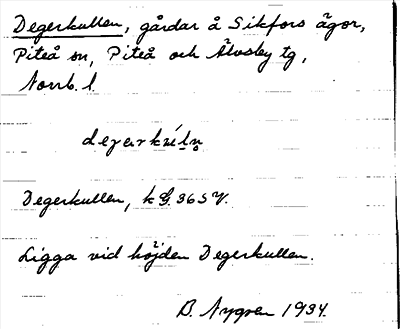 Degerkullen, gårdar å Sikfors ägor,
Piteå sn, Piteå och Älvsby tg,
Norrb. l.
degerkúln̥
Degerkullen, k G. 365 V.
Ligga vid höjden Degerkullen.
B. Nygren 1934.